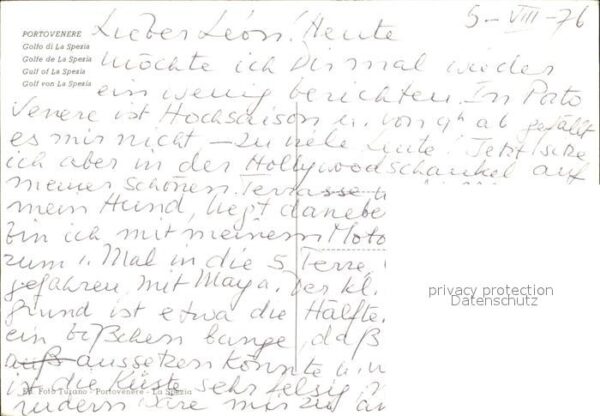 5-VIII-76
PORTOVENERE
Golfo di La Spezia
Golfe de La Spezia
Gulf of La Spezia
Golf von La Spezia
Lieber Léon! Heute
möchte ich Dir mal wieder
ein wenig berichten. In Porto
Venere ist Hochsaison u. von 9h ab gefällt
es mir nicht – zu viele Leute! Jetzt sitze
ich aber in der Hollywoodschaukel auf
meiner schönen Terrasse
mein Hund, liegt danebe
bin ich mit meinem Moto
zum 1. Mal in die 5 Terre
gefahren, mit Maya. Der kl.
grund ist etwa die Hälfte.
ein bißchen bange, daß
aussetzen könnte u.
ist die Küste sehr felsig
rudern wäre mir zu an
Foto Turano - Portovenere - La Spezia
privacy protection
Datenschutz